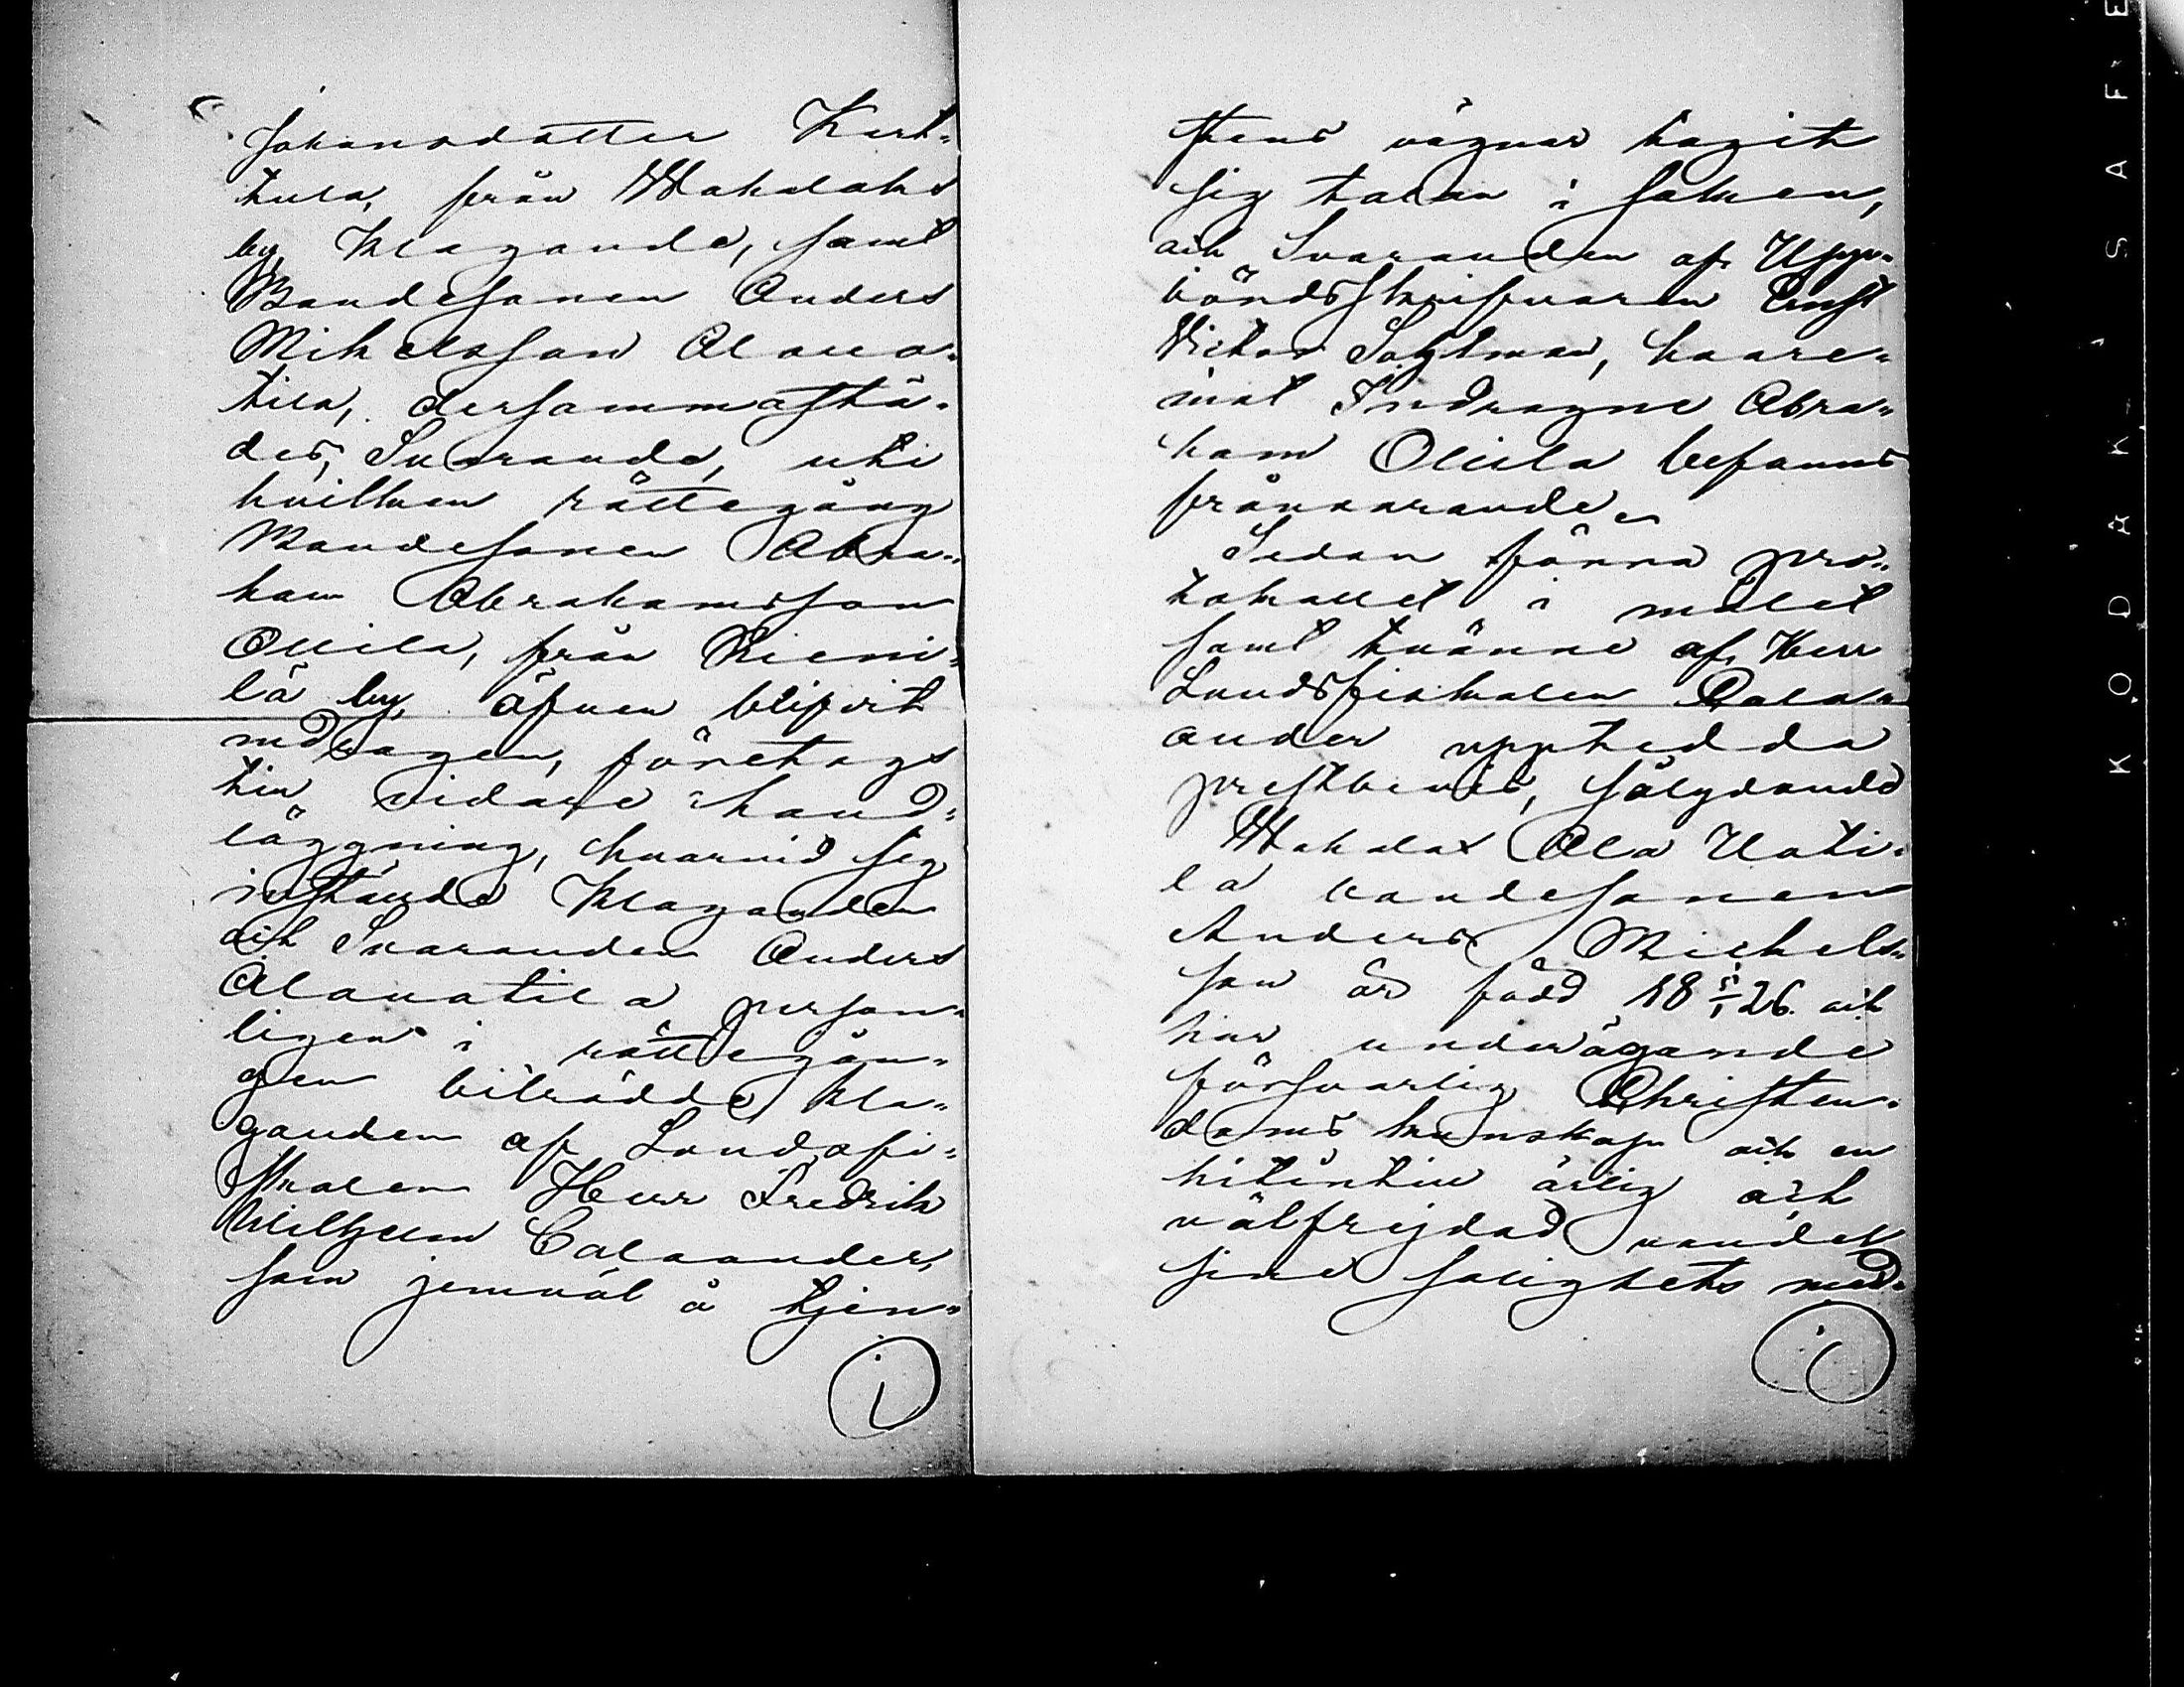 Johansdotter Kart-
tula, från Wakalaks
by, Klagande, samt
Bondesonen Anders
Mikelsson Alaua-
tila, dersammastä-
des, Svarande, uti
hvilken rättegång
Bondesonen Abra-
ham Abrahamsson
Ollila, från Niemi-
lä by, äfven blifvit
indragen, företogs
till vidare hand-
läggning, hvarvid sig
instände Klaganden
och Svaranden Anders
Alauatila person-
ligen i rättegån-
gen biträdde Kla-
ganden af Landsfi-
skalen Herr Fredrik
Wilhelm Calaander,
som jemväl å tjen-
stens vägnar tagit
sig talan i saken,
och Svaranden af Upp-
bördsskrifvaren Ernst
Victor Sahlman, hvare-
mot Indragne Abra-
ham Ollila befanns
frånvarande.
Sedan förra pro-
tokollet i målet
samt tvänne af Herr
Landsfiskalen Cala-
ander upptedda
prestbevis, sålydande
Wakalax Ala Uoti-
la bondesonen
Anders Michels-
son är född 18 5/1 26. och
har undvägande
försvarlig Christen-
doms kunskap och en
hitintill ärlig och
välfrejdad vandel
sine salighets med-